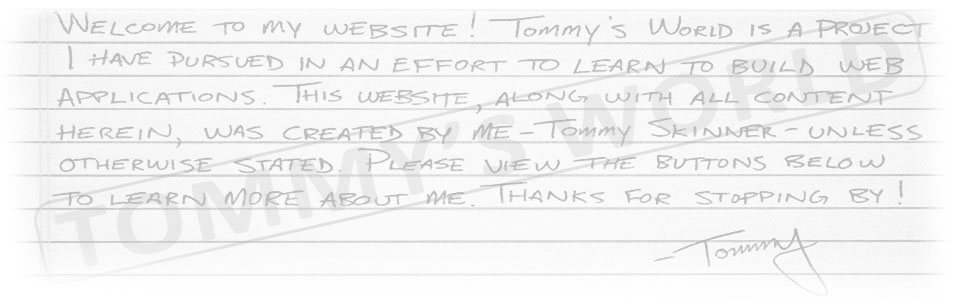 WELCOME TO MY WEBSITE! TOMMY'S WORLD IS A PROJECT
I HAVE PURSUED IN AN EFFORT TO LEARN TO BUILD WEB
APPLICATIONS. THIS WEBSITE, ALONG WITH ALL CONTENT
HEREIN, WAS CREATED BY ME – TOMMY SKINNER – UNLESS
OTHERWISE STATED. PLEASE VIEW THE BUTTONS BELOW
TO LEARN MORE ABOUT ME. THANKS FOR STOPPING BY!
–Tommy
TOMMY'S WORLD